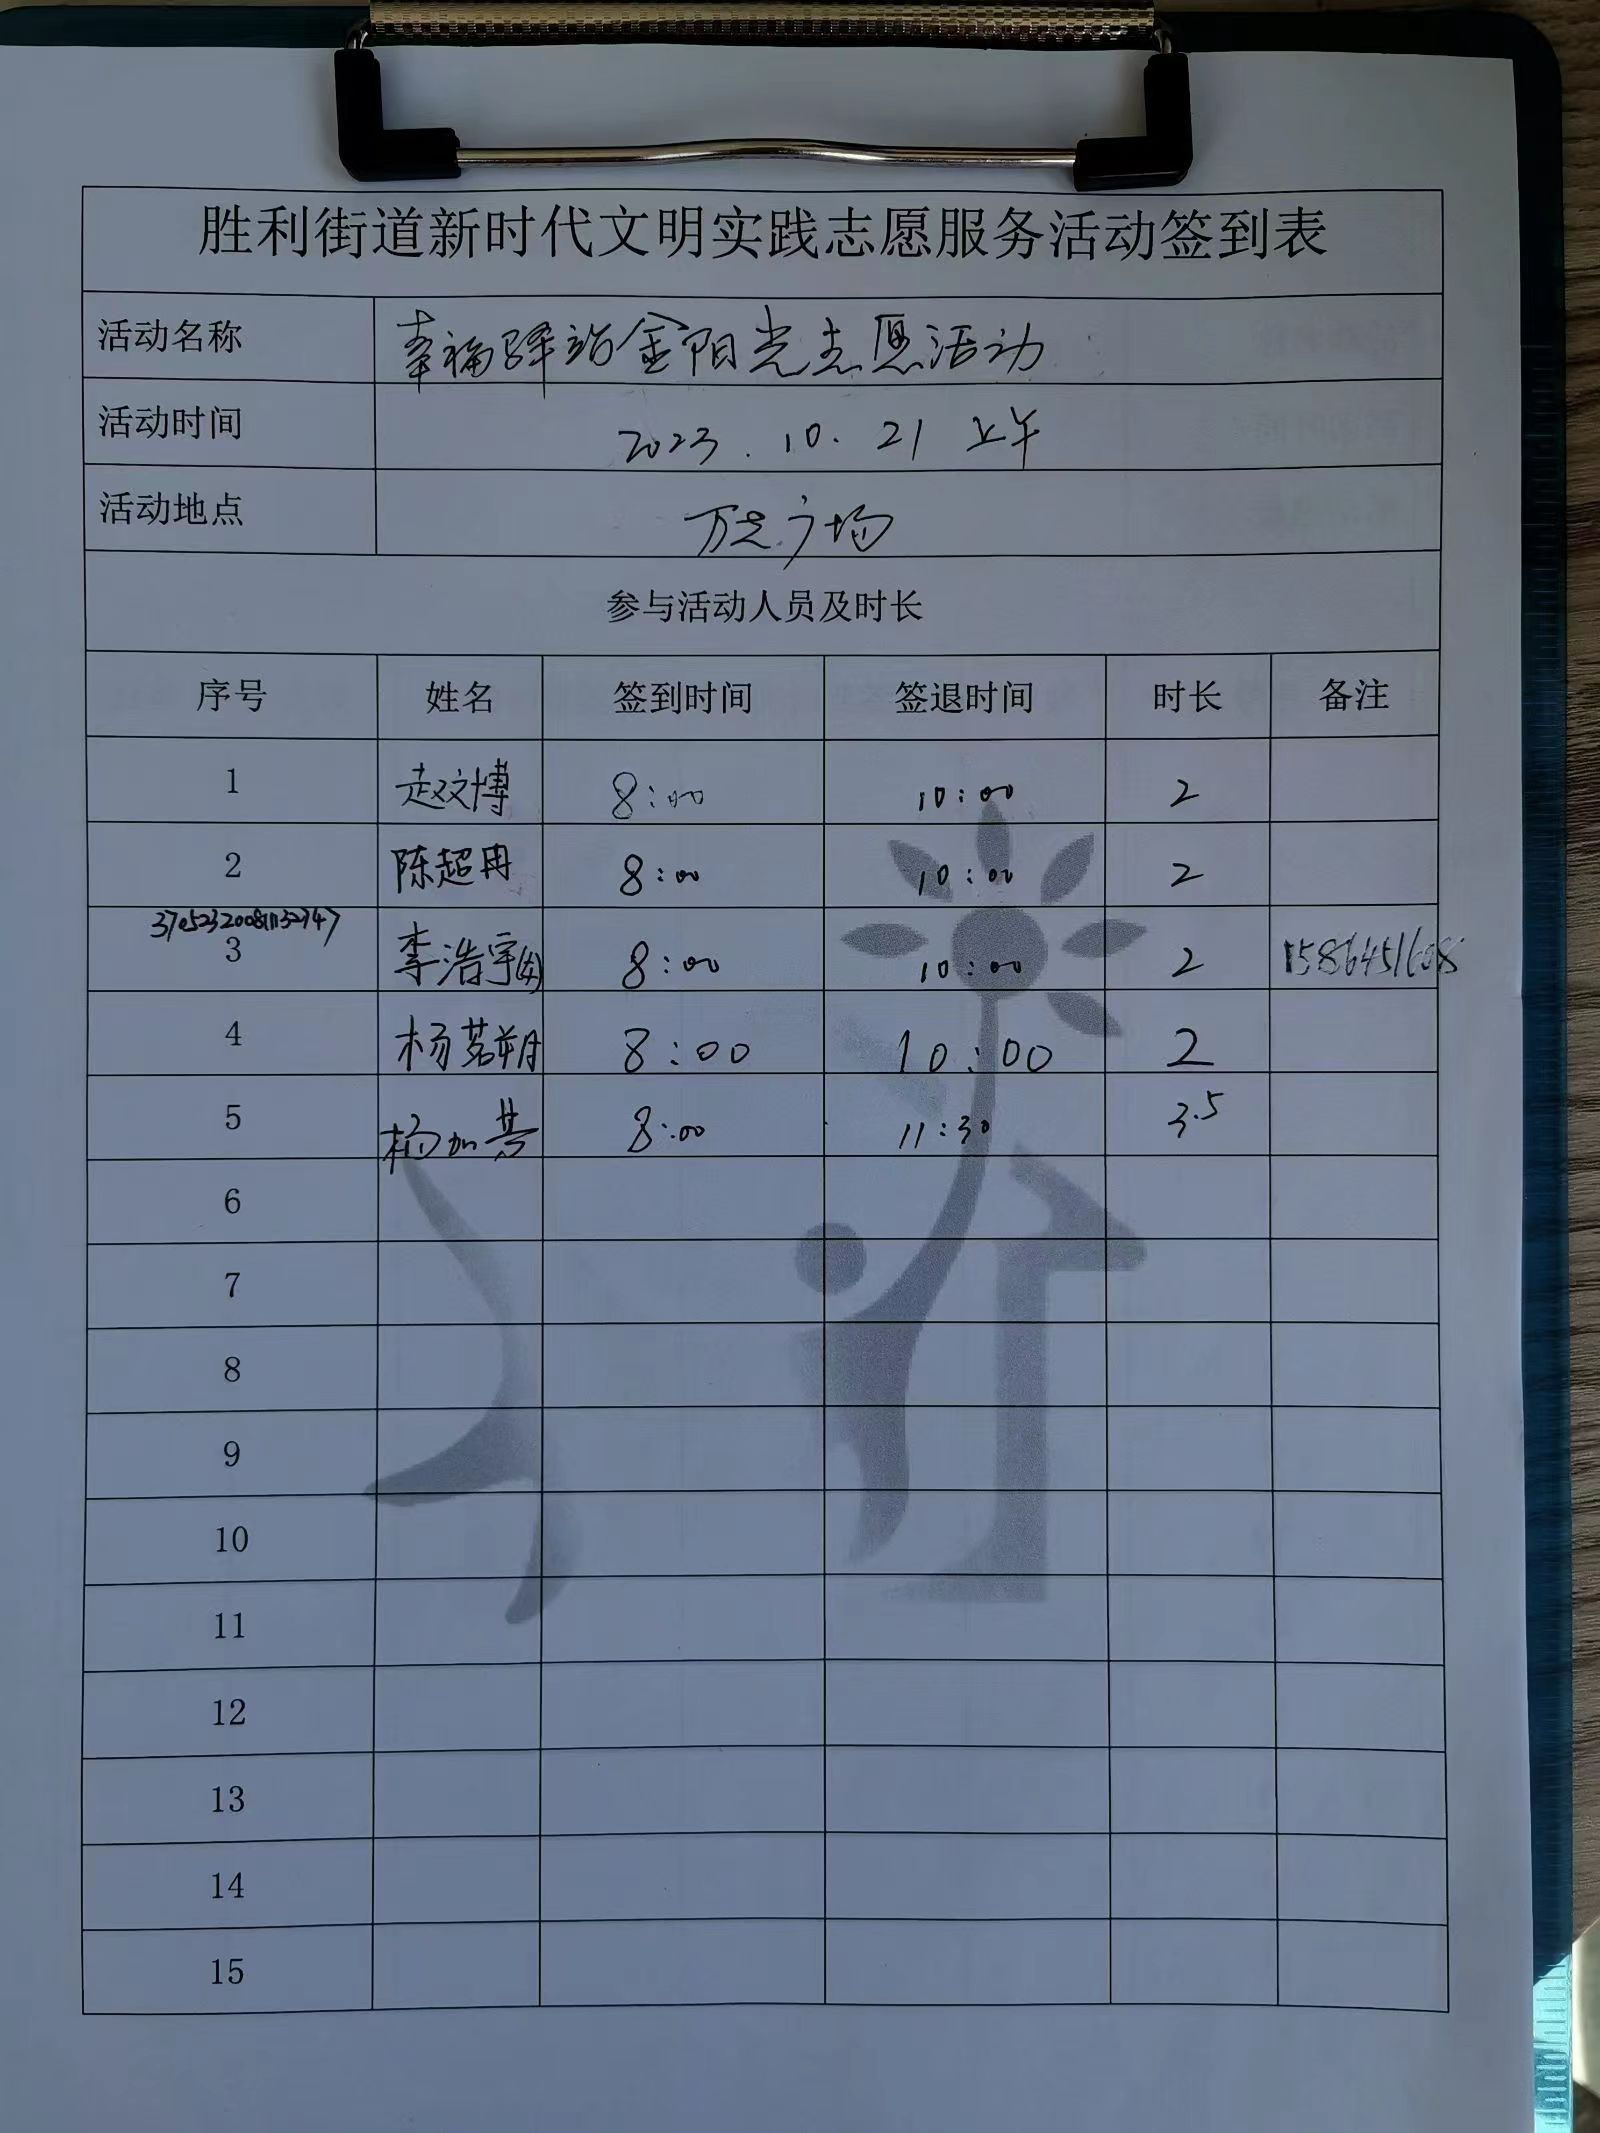 胜利街道新时代文明实践志愿服务活动签到表
活动名称 幸福驿站金阳光志愿活动
活动时间 2023.10.21 上午
活动地点 万达广场
参与活动人员及时长
序号 姓名 签到时间 签退时间 时长 备注
1 赵文博 8:00 10:00 2
2 陈超冉 8:00 10:00 2
3 李浩宇 8:00 10:00 2
4 杨茗朔 8:00 10:00 2
5 杨加 8:00 11:30 3.5
6
7
8
9
10
11
12
13
14
15